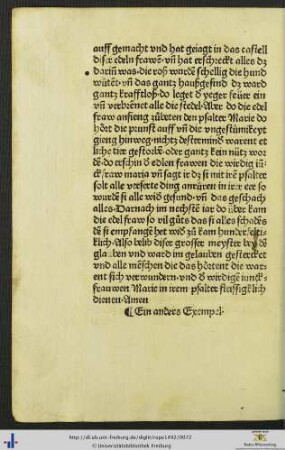 auff gemacht vnd hat geiagt in das castell
diser edeln frawen vñ hat erschreckt alles dz
darin̄ was·die roß wurdē schellig die hund
wütetẽ·vñ das gantz haußgesind dz ward
gantz krafftloß·do leget d̄ veger feüer ein
vñ verbrēnet alle die stedel·Aber do die edel
fraw anfieng zůbeten den psalter Marie do
hört die prunst auff vñ die vngestümikeyt
gieng hinweg·nichtz destermind̄ warent et
liche tier gestorbē·oder gantz kein nütz wor
dē·do erschin d̄ edlen frawen die wirdig iun̄ck
fraw maria vñ sagt ir dz si mit irē psalter
solt alle verserte ding anrüren in irer ere so
wurdē si alle wid̄ gesund·vñ das geschach
alles·Darnach im nechstē iar do über kam
die edel fraw so vil gůts das si alles schadēs
dē si empfangē het wid̄ zů kam hunder
lich·Also belib diser grosser meyster bey dē
glauben vnd ward im gelauben gestercket
vnd alle mēschen die das hörtent die war
ent sich verwundern·vnd d̄ wirdigē iunck
frauwen Marie in irem psalter fleissigklich
dienten·Amen
¶ Ein anders Exempel·
http://dl.ub.uni-freiburg.de/diglit/rupe1492/0072
© Universitätsbibliothek Freiburg